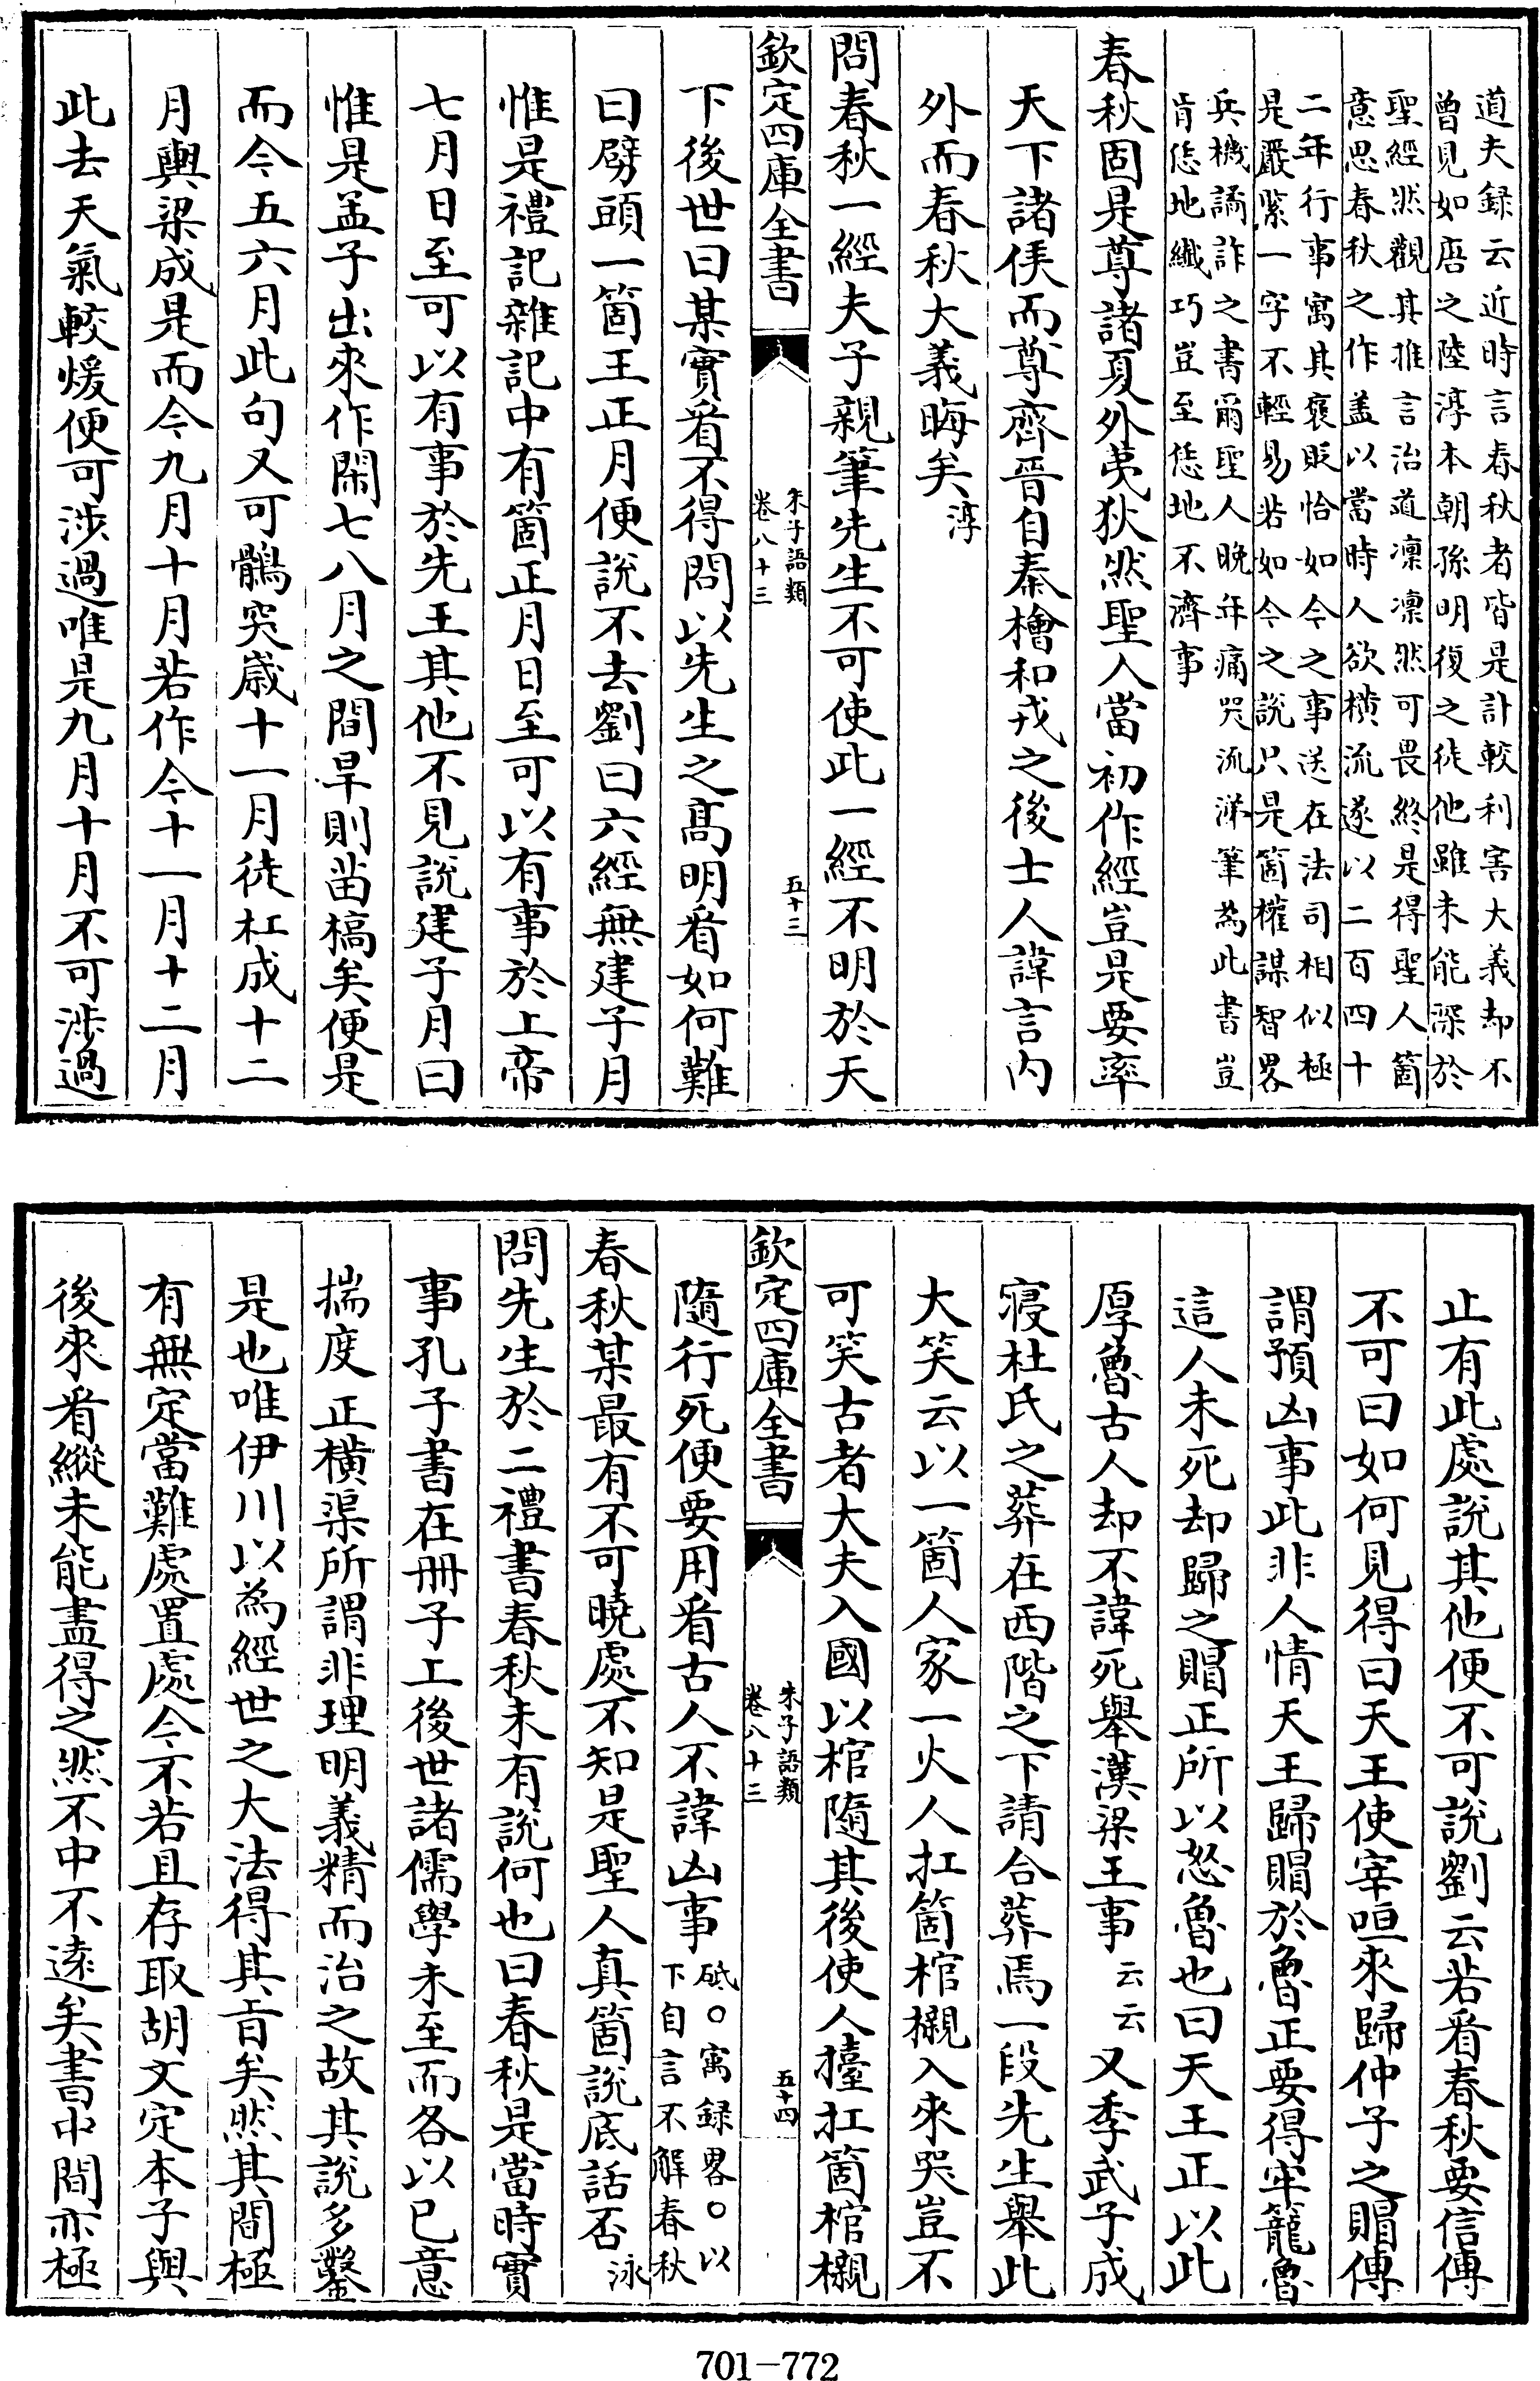 道夫録云近時言春秋者皆是計較利害大義却不
曾見如唐之陸淳本朝孫明復之徒他雖未能深於
聖經然觀其推言治道凜凜然可畏終是得聖人箇
意思春秋之作盖以當時人欲横流遂以二百四十
二年行事寓其褒貶恰如今之事送在法司相似極
是嚴𦂳一字不輕易若如今之說只是箇權謀智畧
兵機譎詐之書爾聖人晚年痛哭流涕筆為此書豈
肯恁地纎巧豈至恁地不濟事
春秋固是尊諸夏外夷狄然聖人當初作經豈是要率
天下諸侯而尊齊晉自秦檜和戎之後士人諱言内
外而春秋大義晦矣淳
問春秋一經夫子親筆先生不可使此一經不明於天
欽定四庫全書
朱子語類
卷八十三
五十三
下後世曰某實看不得問以先生之髙明看如何難
曰劈頭一箇王正月便說不去劉曰六經無建子月
惟是禮記雜記中有箇正月日至可以有事於上帝
七月日至可以有事於先王其他不見說建子月曰
惟是孟子出來作閙七八月之間旱則苗槁矣便是
而今五六月此句又可鶻突歳十一月徒杠成十二
月輿梁成是而今九月十月若作今十一月十二月
此去天氣較煖便可涉過唯是九月十月不可涉過
止有此處說其他便不可說劉云若看春秋要信傳
不可曰如何見得曰天王使宰咺來歸仲子之賵傳
謂預凶事此非人情天王歸賵於魯正要得牢籠魯
這人未死却歸之賵正所以怒魯也曰天王正以此
厚魯古人却不諱死舉漢梁王事云云又季武子成
寢杜氏之葬在西階之下請合葬焉一段先生舉此
大笑云以一箇人家一火人扛箇棺櫬入來哭豈不
可笑古者大夫入國以棺隨其後使人擡扛箇棺櫬
欽定四庫全書
朱子語類
卷八十三
五十四
隨行死便要用看古人不諱凶事砥○㝢録畧○以
下自言不解春秋
春秋某最有不可曉處不知是聖人真箇說底話否泳
問先生於二禮書春秋未有說何也曰春秋是當時實
事孔子書在冊子上後世諸儒學未至而各以已意
揣度正横渠所謂非理明義精而治之故其說多鑿
是也唯伊川以為經世之大法得其㫖矣然其間極
有無定當難處置處今不若且存取胡文定本子與
後來看縱未能盡得之然不中不逺矣書中間亦極
701-772